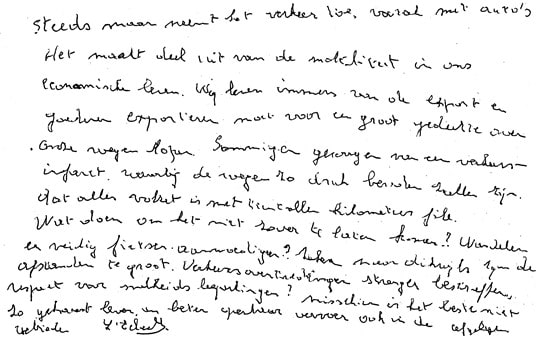 steeds maar neemt het verkeer toe, vooral met auto's
Het maakt deel uit van de mobiliteit in ons
economische leven. Wij leven immers van de export en
goederen exporteren moet voor een groot gedeelte over
onze wegen lopen. Sommigen gewagen van een verkeers-
infarct, waarbij de wegen zo druk bereden zullen zijn,
dat alles vastzit met tientallen kilometers file.
Wat doen om het niet zover te laten komen? Wandelen
en veilig fietsen aanmoedigen? Zeker maar dikwijls zijn de
afstanden te groot. Verkeersovertredingen strenger bestraffen,
respect voor snelheidsbeperkingen? misschien is het beste niet
zo gehaast leven, en beter openbaar vervoer ook in de